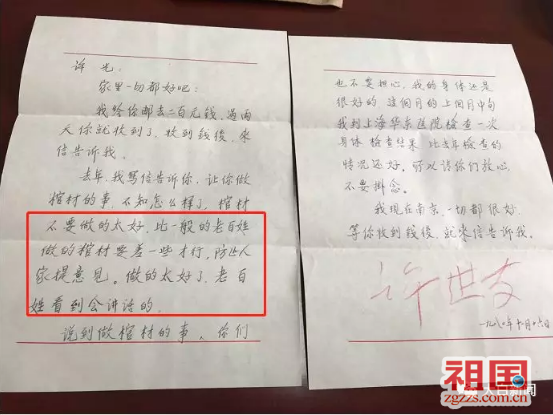 许光
家里一切都好吧：
我给你邮去二百元钱，过两
天你就收到了，收到钱後，来
信告诉我。
去年，我写信告诉你，让你做
棺材的事，不知怎么样了，棺材
不要做的太好，比一般的老百姓
做的棺材要差一些才行，防止人
家提意见。做的太好了，老百
姓看到会讲话的。
说到做棺材的事，你们
也不要担心，我的身体还是
很好的，这个月的上个月中旬
我到上海华东医院检查一次
身体，检查结果，比去年检查的
情况还好，可以请你们放心，
不要掛念。
我现在南京，一切都很好，
等你收到钱後，就来信告诉我。
许世友
一九八〇年十月十六日
祖国
zgzzs.com.cn
大白新闻